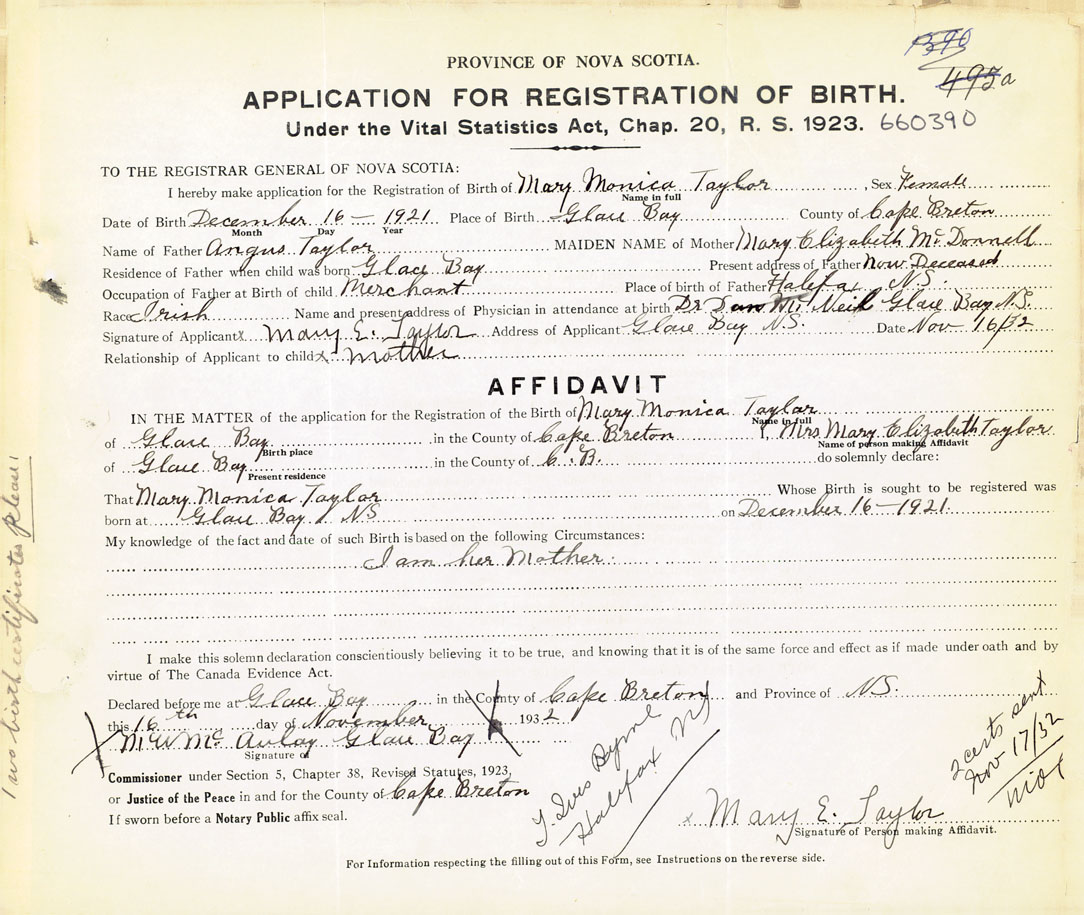 390
493a
PROVINCE OF NOVA SCOTIA.
APPLICATION FOR REGISTRATION OF BIRTH.
Under the Vital Statistics Act, Chap. 20, R. S. 1923. 660390
TO THE REGISTRAR GENERAL OF NOVA SCOTIA:
I hereby make application for the Registration of Birth of Mary Monica Taylor, Sex Female
Name in full
Date of Birth December 16 - 1921 Place of Birth Glace Bay County of Cape Breton
Month Day Year
Name of Father Angus Taylor MAIDEN NAME of Mother Mary Elizabeth McDonnell
Residence of Father when child was born Glace Bay Present address of Father Now Deceased
Occupation of Father at Birth of child Merchant Place of birth of Father Halifax N.S.
Race Irish Name and present address of Physician in attendance at birth Dr Dan McNeil Glace Bay N.S.
Signature of Applicant x Mary E. Taylor Address of Applicant Glace Bay N.S. Date Nov 16/32
Relationship of Applicant to child x Mother
AFFIDAVIT
IN THE MATTER of the application for the Registration of the Birth of Mary Monica Taylor
Name in full
of Glace Bay in the County of Cape Breton I, Mrs Mary Elizabeth Taylor
Birth place Name of person making Affidavit
of Glace Bay in the County of C.B. do solemnly declare:
Present residence
That Mary Monica Taylor Whose Birth is sought to be registered was
born at Glace Bay NS on December 16-1921.
My knowledge of the fact and date of such Birth is based on the following Circumstances:
I am her Mother.
I make this solemn declaration conscientiously believing it to be true, and knowing that it is of the same force and effect as if made under oath and by
virtue of The Canada Evidence Act.
Declared before me at Glace Bay in the County of Cape Breton and Province of N.S.
this 16th day of November 1932
M W McAulay Glace Bay
Signature of
Commissioner under Section 5, Chapter 38, Revised Statutes, 1923,
or Justice of the Peace in and for the County of Cape Breton
If sworn before a Notary Public affix seal.
Halifax NS
x Mary E. Taylor
Signature of Person making Affidavit.
2 certs sent
Nov 17/32
For Information respecting the filling out of this Form, see Instructions on the reverse side.
Two birth certificates Please!